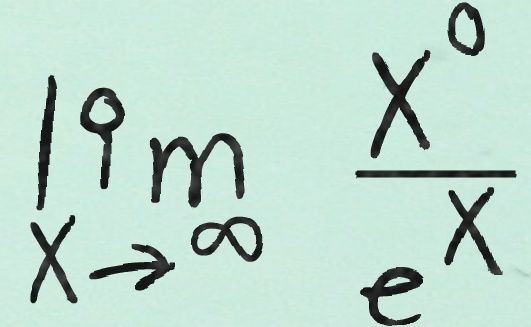 lim x→∞ x^0 / e^x